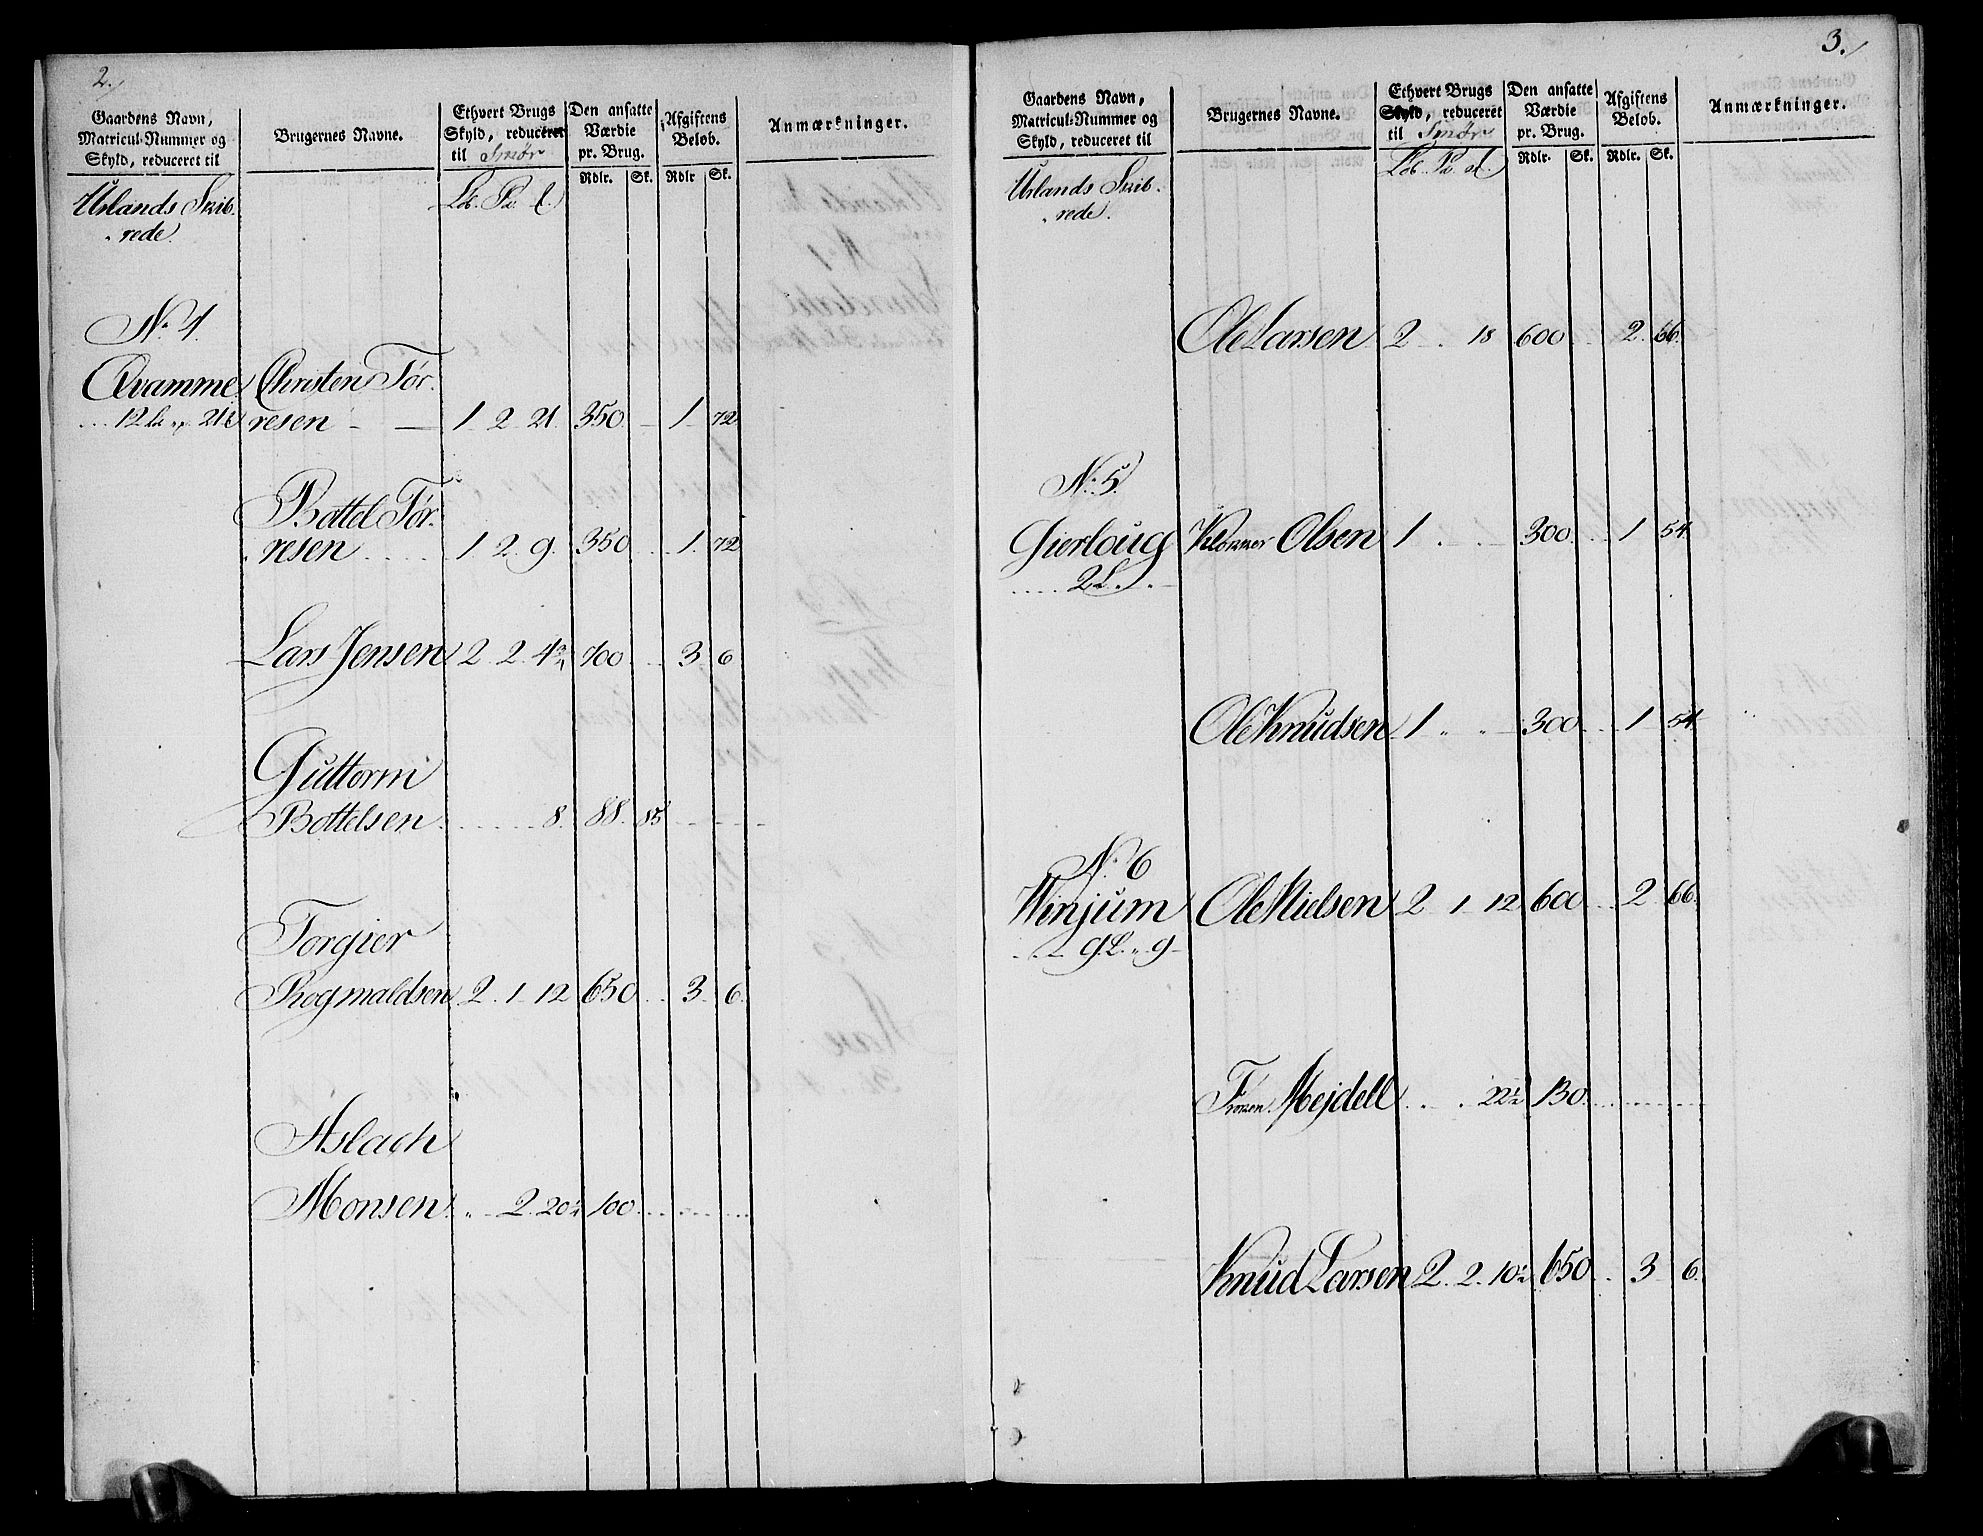 2.
Gaardens Navn,
Matricul-Nummer og
Skyld, reduceret til
Brugernes Navne.
Ethvert Brugs
Skyld, reduceret
til Smør
Den ansatte
Værdie
pr. Brug.
Rdlr. Sk.
Afgiftens
Beløb.
Rdlr Sk.
Anmærkninger.
Urlands Skib.
rede.
No. 4.
Qvamme Christen Tør.
12 21 resen 1 2 21 350 1 72
Bottel Tør.
resen 1 2 9. 350 1. 72
Lars Jensen 2 2 4 700 3 6
Guttorm
Bottelsen 8. 88 85
Torgier
Rogmaldsen 2 1 12 650 3 6
Aslach
Monsen 2 20½ 100
3.
Gaardens Navn,
Matricul-Nummer og
Skyld, reduceret til
Brugernes Navne.
Ethvert Brugs
Skyld, reduceret
til Smør
Den ansatte
Værdie
pr. Brug.
Rdlr. Sk.
Afgiftens
Beløb.
Rdlr. Sk.
Anmærkninger.
Urlands Skib.
rede.
Ole Larsen 2 18 600 2 66.
No. 5.
Gierloug Olsen 1 300 1 54.
2 L.
Ole Knudsen 1 300 1 54.
No. 6
Winjum Ole Nielsen 2 1 12 600 2 66.
9 L. 9
Mejdell 22½ 130
Knud Larsen 2. 2. 10½ 650 3 6.